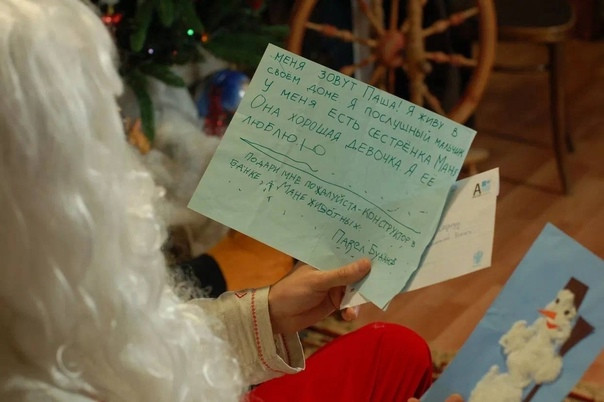 МЕНЯ ЗОВУТ ПАША! Я ЖИВУ В
СВОЕМ ДОМЕ Я ПОСЛУШНЫЙ МАЛЬЧИК
У МЕНЯ ЕСТЬ СЕСТРЁНКА МАНЕ
ОНА ХОРОШАЯ ДЕВОЧКА Я ЕЕ
ЛЮБЛЮ.Ю
ПОДАРИ МНЕ ПОЖАЛУЙСТА-КОНСТРУКТОР В
БАНКЕ, А МАНЕ ЖИВОТНЫХ.
ПАВЕЛ
А